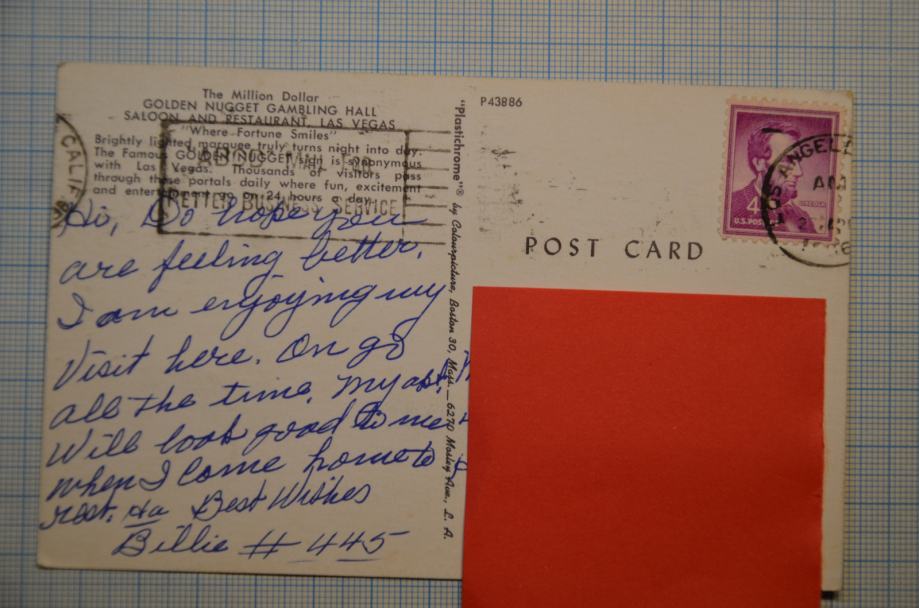 The Million Dollar
GOLDEN NUGGET GAMBLING HALL
SALOON AND RESTAURANT, LAS VEGAS
"Where Fortune Smiles"
Brightly lighted marquee truly turns night into day.
The Famous GOLDEN NUGGET sign is synonymous
with Las Vegas. Thousands of visitors pass
through these portals daily where fun, excitement
and entertainment go on 24 hours a day.
CALIF
BETTER BUSINESS SERVICE
Hi, Do hope you
are feeling better.
I am enjoying my
Visit here. On go
all the time. My apt.
Will look good to me
when I come home to
rest. Ha Best Wishes
Billie # 445
"Plastichrome"® by Colourpicture, Boston 30, Mass. 6270 Motley Ave., L. A.
P43886
POST CARD
4¢
U.S. POSTAGE
LINCOLN
LOS ANGELE
AM